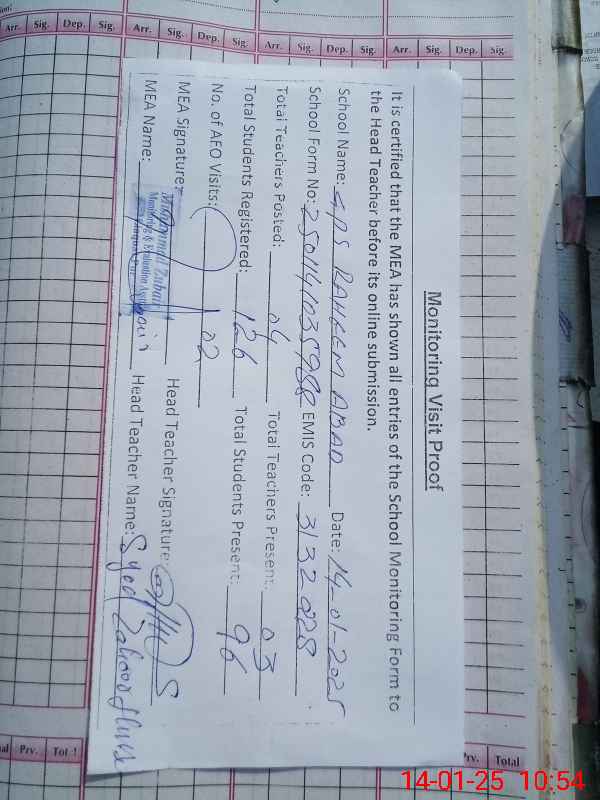 Arr. Sig. Dep. Sig. Arr. Sig. Dep. Sig. Arr. Sig. Dep. Sig. Arr. Sig. Dep. Sig.
Monitoring Visit Proof
It is certified that the MEA has shown all entries of the School Monitoring Form to
the Head Teacher before its online submission.
School Name: GPS RAHEEM ABAD Date: 14-01-2025
School Form No: EMIS Code:
Total Teachers Posted: 04 Total Teachers Present: 03
Total Students Registered: 126 Total Students Present: 96
No. of AEO Visits: 02
MEA Signature: Head Teacher Signature:
Muhammad Zubair
Monitoring & Evaluation
MEA Name: Head Teacher Name: Syed
Prv. Tot
Prv. Total
14-01-25 10:54